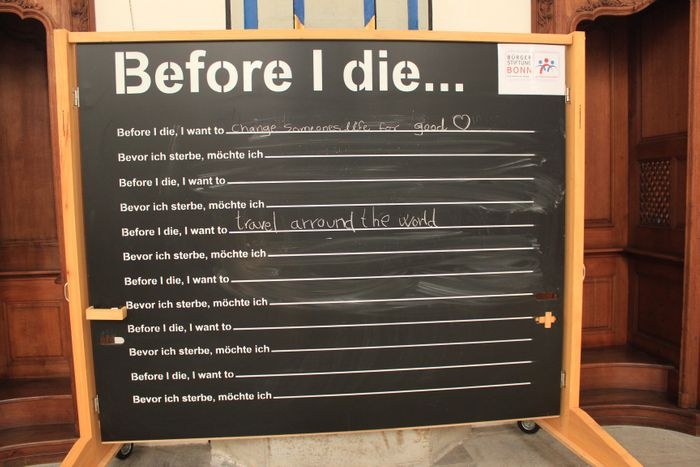 Before I die...
BÜRGER
STIFTUNG
BONN
Before I die, I want to change someones life for good ♡
Bevor ich sterbe, möchte ich
Before I die, I want to
Bevor ich sterbe, möchte ich
Before I die, I want to travel arround the world
Bevor ich sterbe, möchte ich
Before I die, I want to
Bevor ich sterbe, möchte ich
Before I die, I want to
Bevor ich sterbe, möchte ich
Before I die, I want to
Bevor ich sterbe, möchte ich